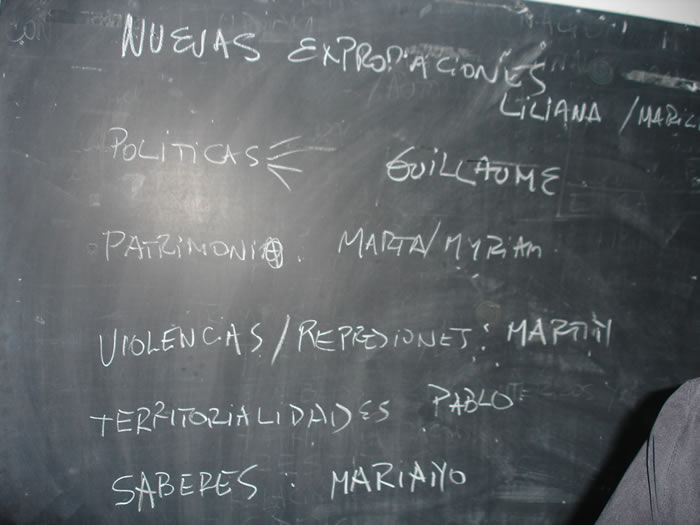 NUEVAS EXPROPIACIONES
LILIANA / MARIL
POLITICAS GUILLAUME
PATRIMONIO: MARTA/MYRIAM
VIOLENCIAS/REPRESIONES: MARTIN
TERRITORIALIDADES PABLO
SABERES: MARIANO